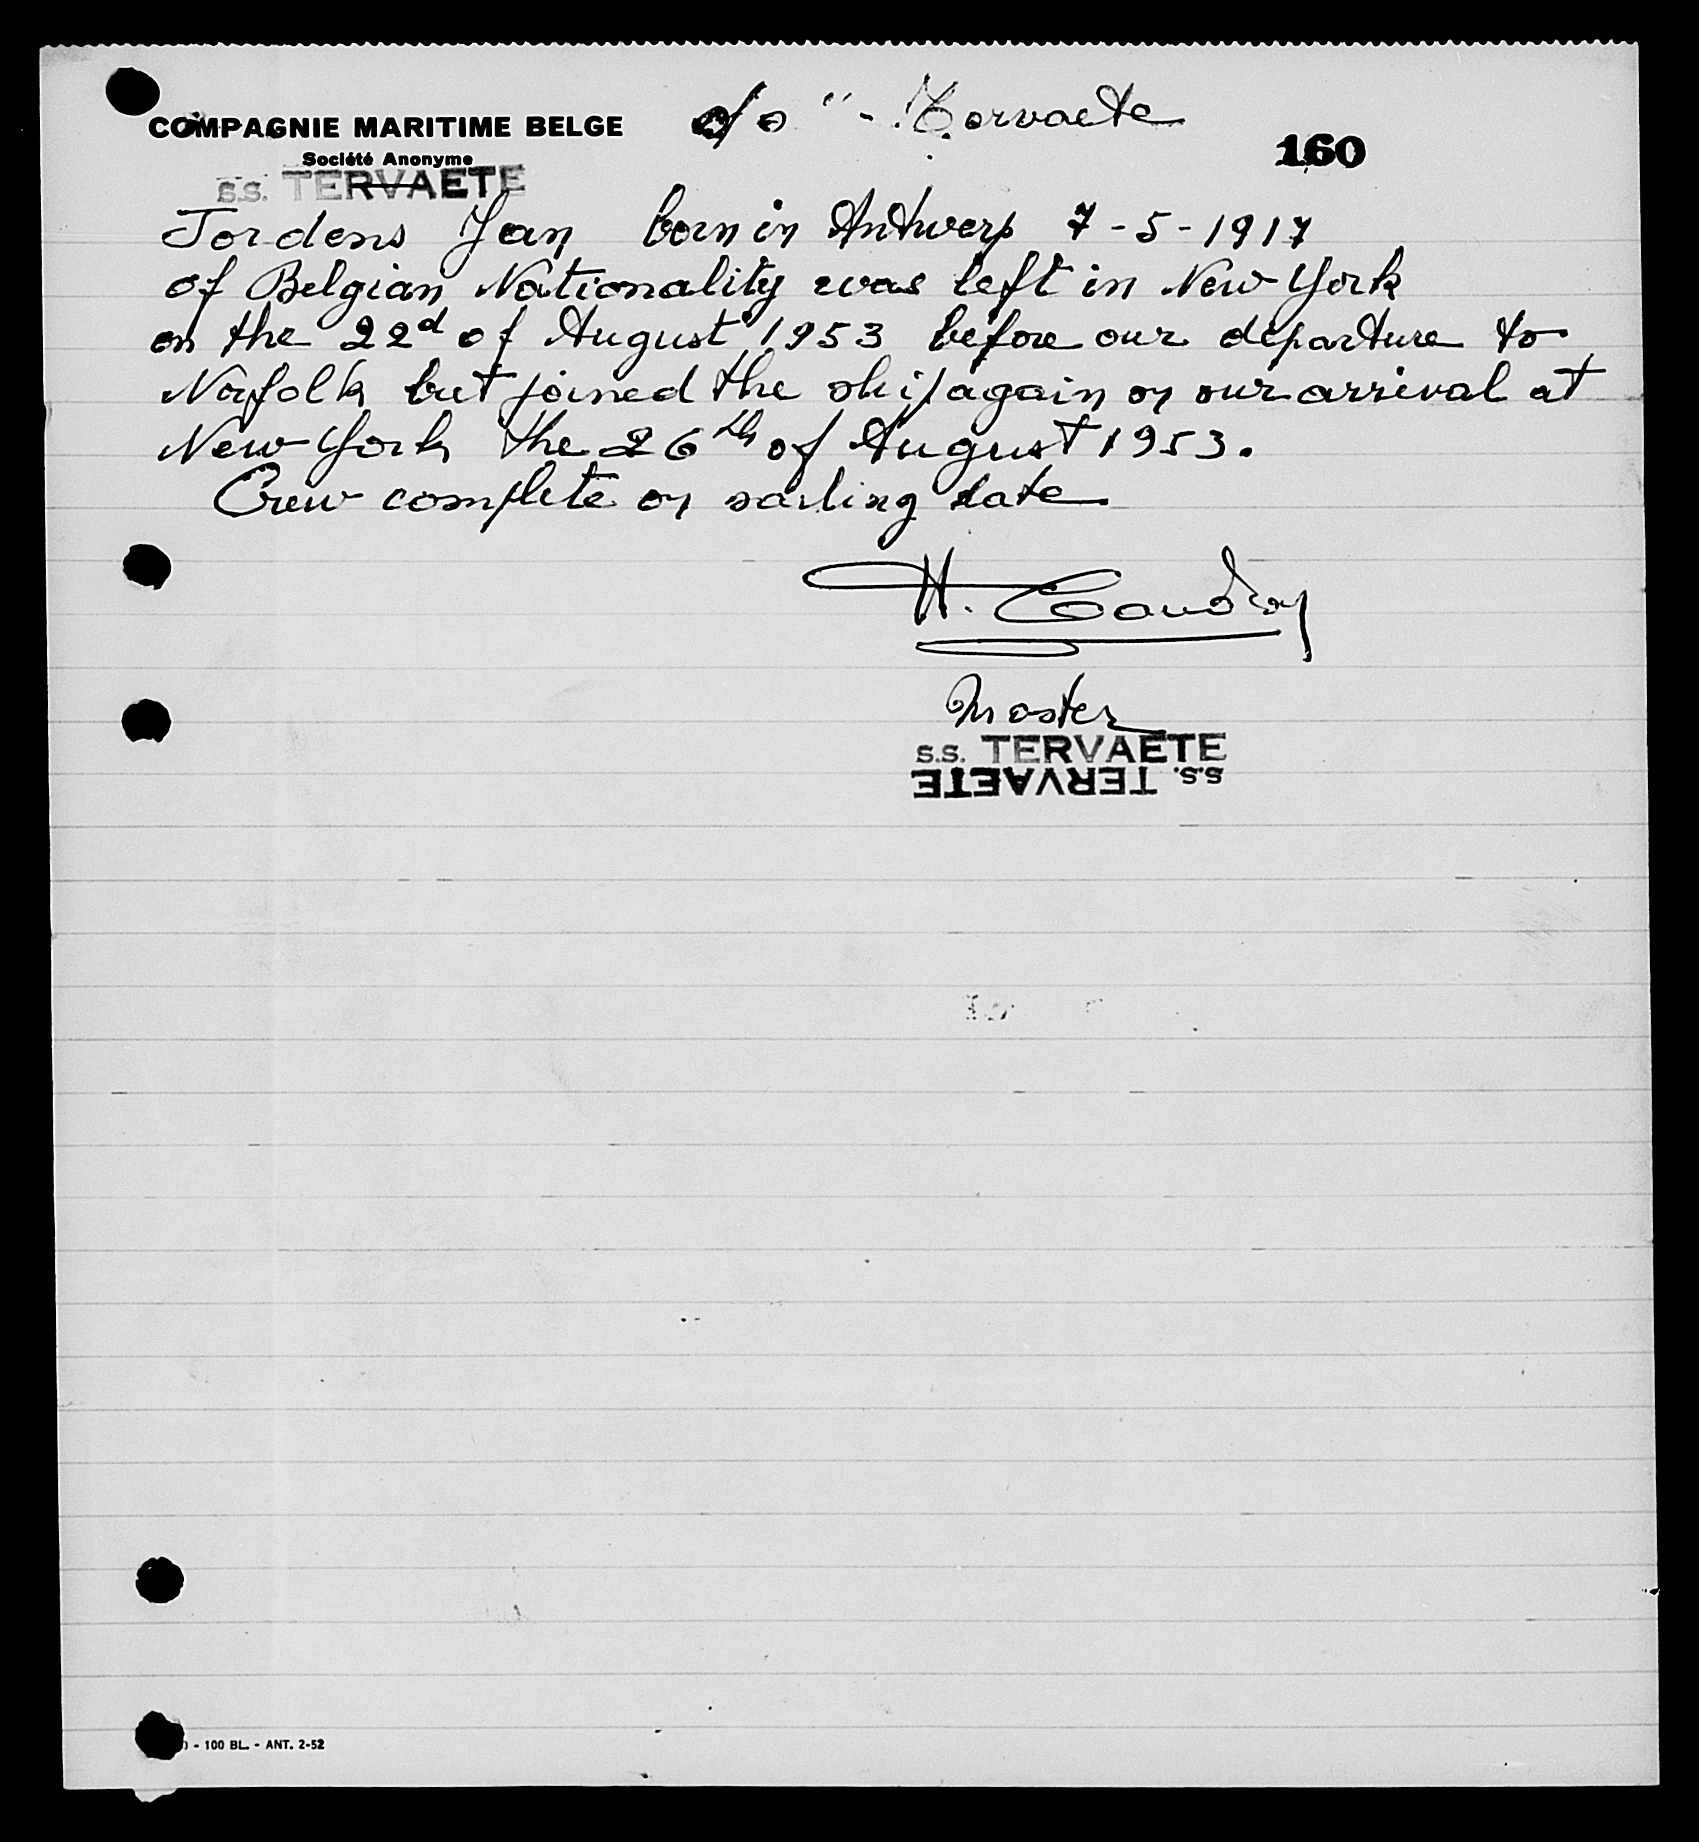 COMPAGNIE MARITIME BELGE
Société Anonyme
s/s "Tervaete
160
S.S. TERVAETE
Jordens Jan born in Antwerp 7-5-1917
of Belgian Nationality was left in New York
on the 22d of August 1953 before our departure to
Norfolk but joined the ship again on our arrival at
New York the 26th of August 1953.
Crew complete on sailing date
H.
Master
S.S. TERVAETE
S.S. TERVAETE
- 100 BL. - ANT. 2-52